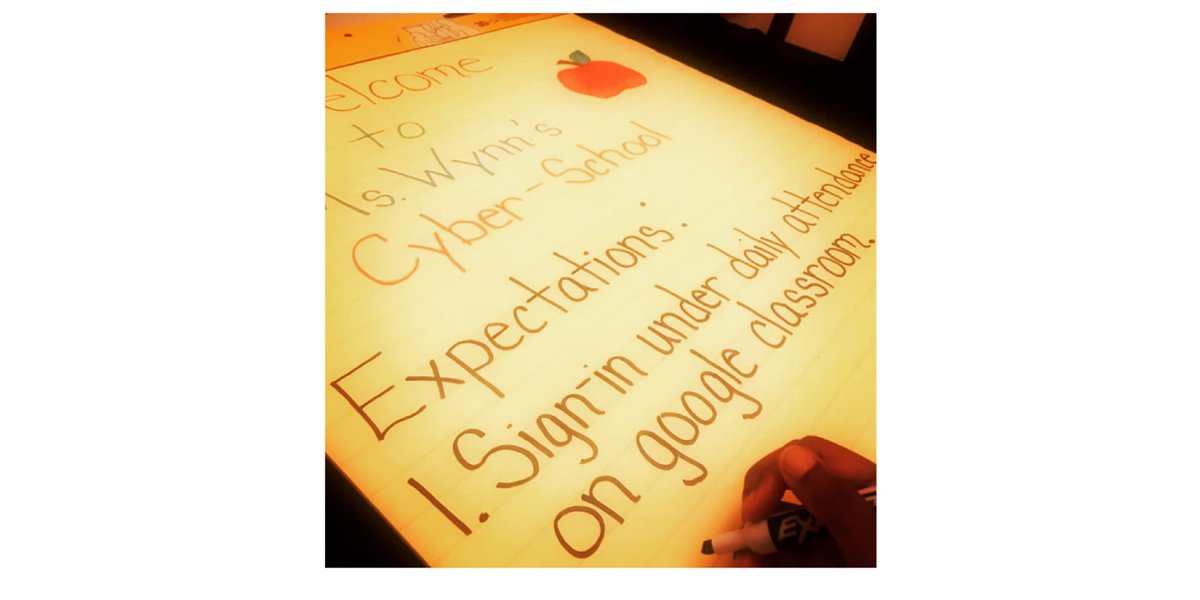 elcome
to
Ms. Wynn's
Cyber-School
Expectations:
1. Sign-in under daily attendance
on google classroom.
EX